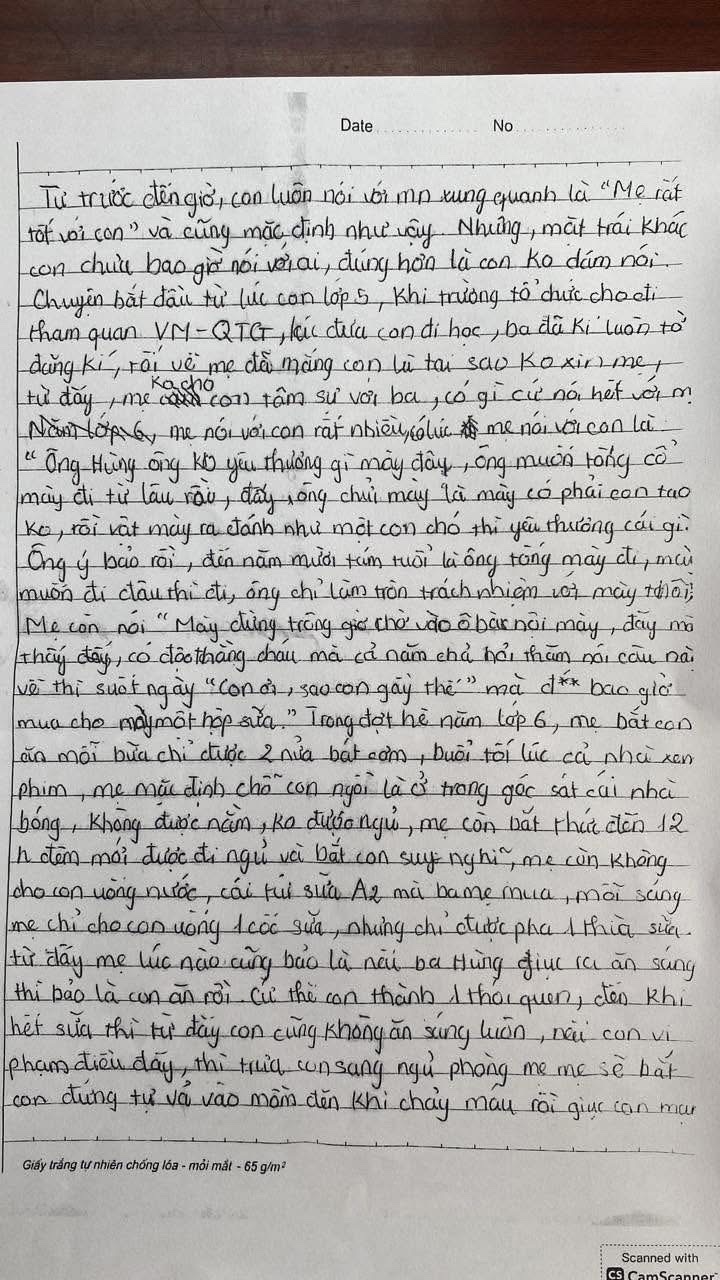 Date ............... No ...............
Từ trước đến giờ, con luôn nói với mn xung quanh là "Mẹ rất
tốt với con" và cũng mặc định như vậy. Nhưng, mặt trái khác
con chưa bao giờ nói với ai, đúng hơn là con ko dám nói.
Chuyện bắt đầu từ lúc con lớp 5, khi trường tổ chức cho đi
tham quan VM-QTG, lúc đưa con đi học, ba đã kí luôn tờ
đăng kí, rồi về mẹ đã mắng con là tại sao ko xin mẹ,
từ đấy, mẹ ko cho con tâm sự với ba, có gì cứ nói hết với m
Năm lớp 6, mẹ nói với con rất nhiều, có lúc mẹ nói với con là:
"Ông Hùng ông ko yêu thương gì mày đâu, ông muốn tống cổ
mày đi từ lâu rồi, đấy, ông chửi mày là mày có phải con tao
ko, rồi vật mày ra đánh như một con chó thì yêu thương cái gì?
Ông ý bảo rồi, đến năm mười tám tuổi là ông tống mày đi, mày
muốn đi đâu thì đi, ông chỉ làm tròn trách nhiệm với mày thôi"
Mẹ con nói "Mày đừng trông giờ chờ vào ô bà nội mày, đấy mà
thấy đấy, có độc thằng cháu mà cả năm chả hỏi thăm nói câu nào
về thì suốt ngày "con ơi, sao con gầy thế" mà đ** bao giờ
mua cho mày một hộp sữa." Trong đợt hè năm lớp 6, mẹ bắt con
ăn mỗi bữa chỉ được 2 nửa bát cơm, buổi tối lúc cả nhà xem
phim, mẹ mặc định chỗ con ngồi là ở trong góc sát cái nhà
bóng, không được nằm, ko được ngủ, mẹ còn bắt thức đến 12
h đêm mới được đi ngủ và bắt con suy nghĩ, mẹ còn không
cho con uống nước, cái túi sữa A2 mà ba mẹ mua, mỗi sáng
mẹ chỉ cho con uống 1 cốc sữa, nhưng chỉ được pha 1 thìa sữa.
từ đấy mẹ lúc nào cũng bảo là nếu ba Hùng giục ra ăn sáng
thì bảo là con ăn rồi. Cứ thế con thành 1 thói quen, đến khi
hết sữa thì từ đấy con cũng không ăn sáng luôn, nếu con vi
phạm điều đấy, thì trưa con sang ngủ phòng mẹ mẹ sẽ bắt
con đứng tự vả vào mồm đến khi chảy máu rồi giục con mau
Giấy trắng tự nhiên chống lóa - mỏi mắt - 65 g/m²
Scanned with
CS CamScanner